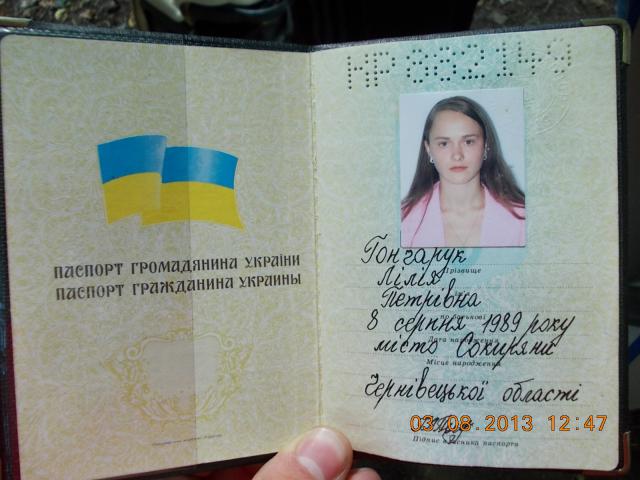 ПАСПОРТ ГРОМАДЯНИНА УКРАЇНИ
ПАСПОРТ ГРАЖДАНИНА УКРАИНЫ
НР 882149
Гончарук
Прізвище
Лілія
Петрівна
по батькові
8 серпня 1989 року
Дата народження
місто Сокиряни
Місце народження
Чернівецької області
03.08.2013 12:47
Підпис власника паспорта